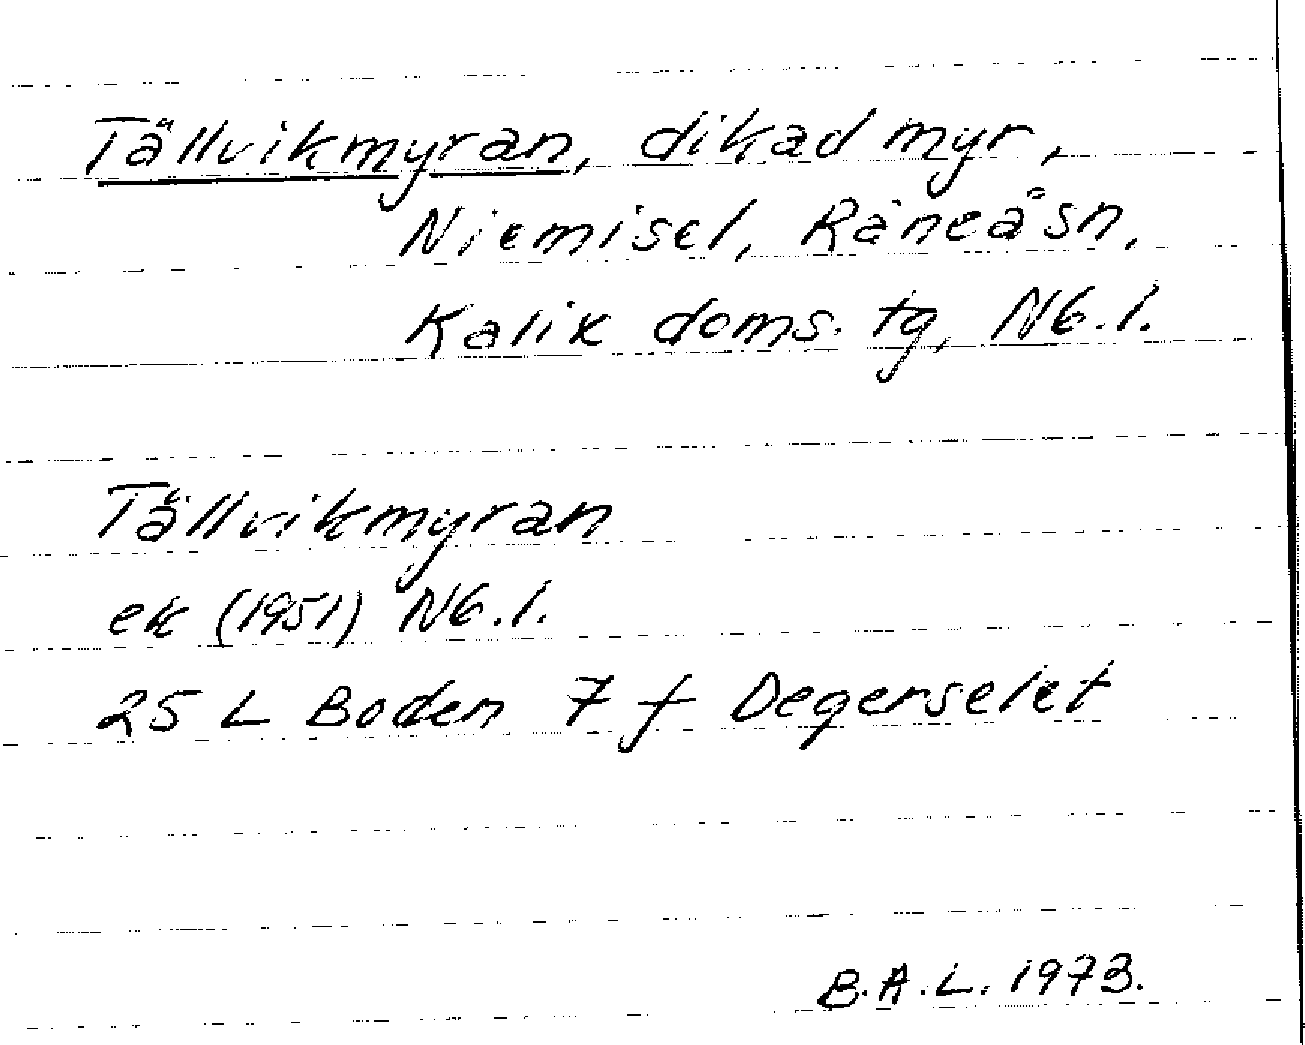 Tällvikmyran, dikad myr,
Niemisel, Råneå sn,
Kalix doms. tg, Nb. l.
Tällvikmyran
ek (1951) Nb. l.
25 L Boden 7 f Degerselet
B.A.L. 1973.